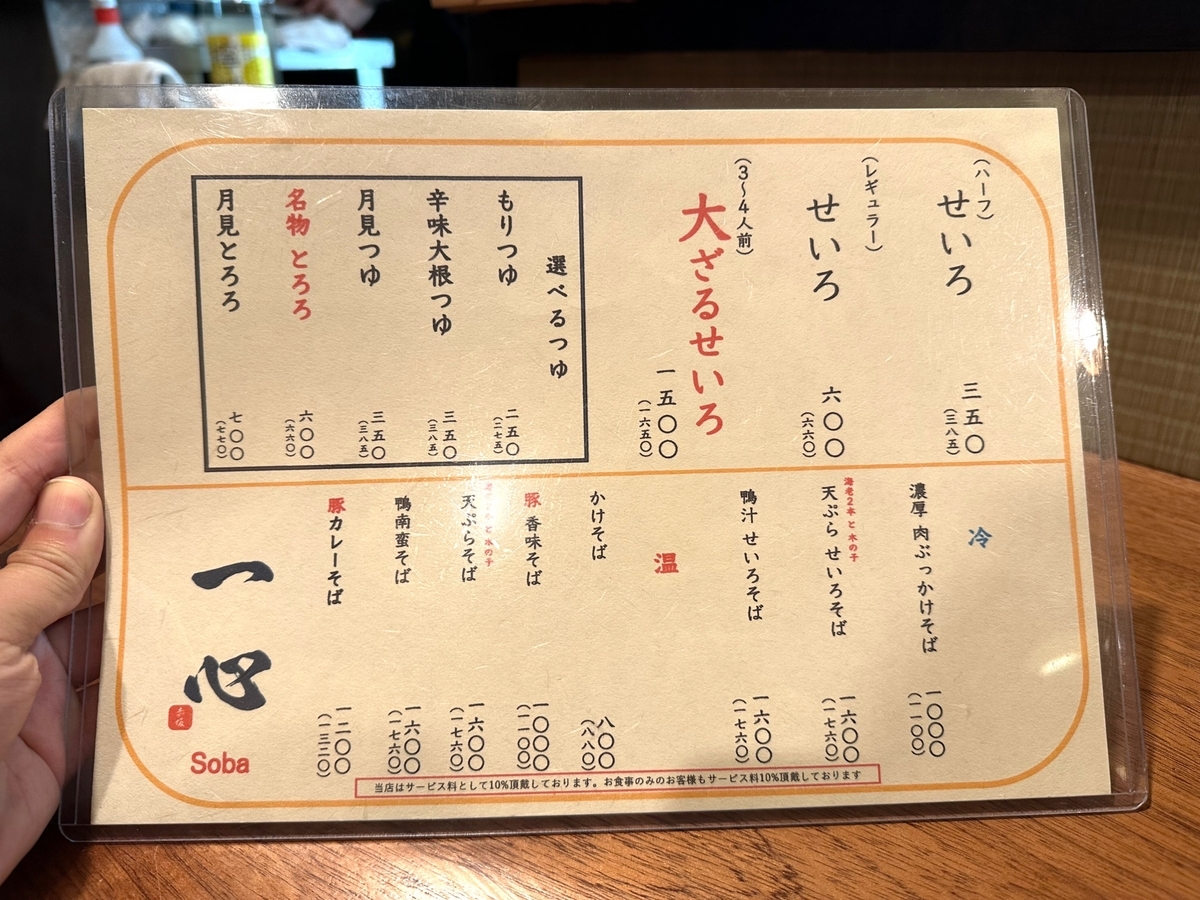 (ハーフ)
せいろ
三五〇
(三八五)
(レギュラー)
せいろ
六〇〇
(六六〇)
(3〜4人前)
大ざるせいろ
一五〇〇
(一六五〇)
選べるつゆ
もりつゆ
二五〇
(二七五)
辛味大根つゆ
三五〇
(三八五)
月見つゆ
三五〇
(三八五)
名物 とろろ
六〇〇
(六六〇)
月見とろろ
七〇〇
(七七〇)
冷
濃厚 肉ぶっかけそば
一〇〇〇
(一一〇〇)
海老2本 と 木の子
天ぷら せいろそば
一六〇〇
(一七六〇)
鴨汁 せいろそば
一六〇〇
(一七六〇)
温
かけそば
八〇〇
(八八〇)
豚 香味そば
一〇〇〇
(一一〇〇)
と 木の子
天ぷらそば
一六〇〇
(一七六〇)
鴨南蛮そば
一六〇〇
(一七六〇)
豚カレーそば
一二〇〇
(一三二〇)
一心
Soba
当店はサービス料として10%頂戴しております。お食事のみのお客様もサービス料10%頂戴しております